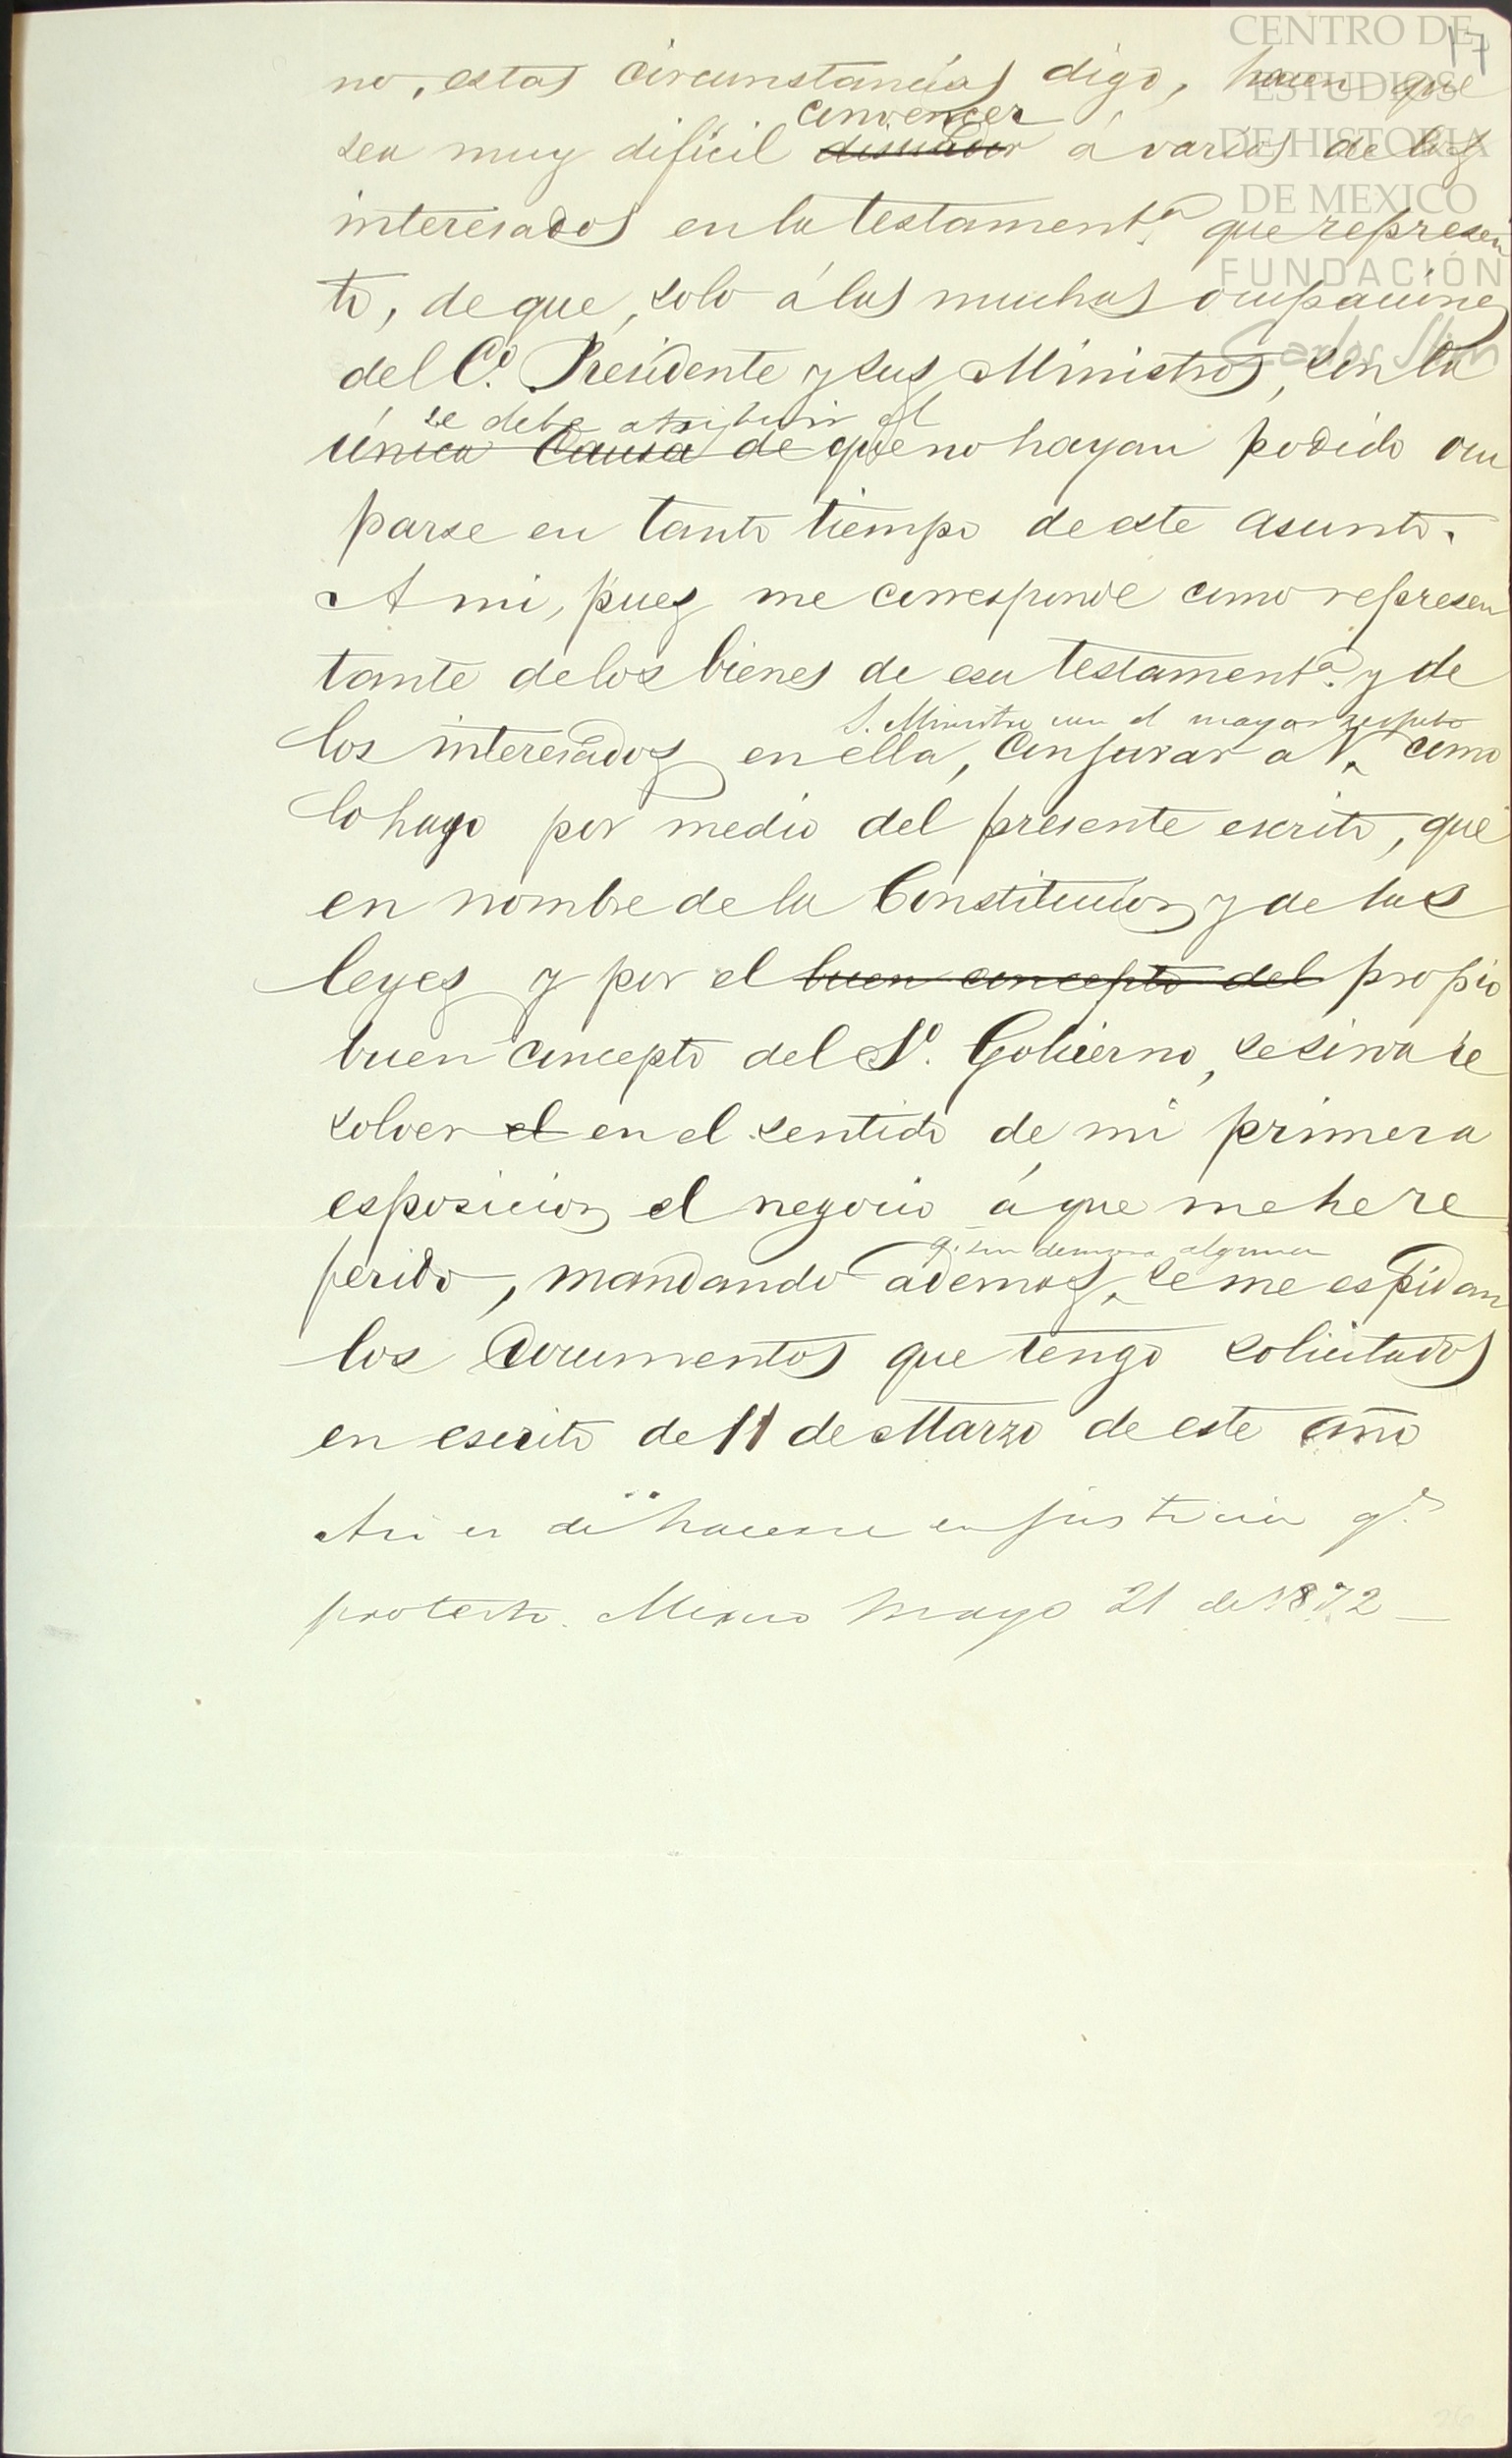 17
no, estas circunstancias digo, hacen que
convencer
sea muy dificil disuadir á varios de los
interesados en la testament.ª que represen
to, de que, solo á las muchas ocupaciones
del C.º Presidente y sus Ministros, son la
se debe atribuir el
única causa de que no hayan podido ocu
parse en tanto tiempo de este asunto.
A mi, pues, me corresponde como represen
tante de los bienes de esa testament.ª y de
S. Ministro con el mayor respeto
los interesados en ella, conjurar a V. como
lo hago por medio del presente escrito, que
en nombre de la Constitucion y de las
leyes y por el buen concepto del propio
buen concepto del S.º Gobierno, se sirva re
solver el en el sentido de mi primera
esposicion el negocio á que me he re
q.e sin demora alguna
ferido, mandando ademas, se me espidan
los documentos que tengo solicitados
en escrito de 11 de Marzo de este año
Asi es de hacerse en justicia q.e
protesto. Mexico Mayo 21 de 1872
CENTRO DE
ESTUDIOS
DE HISTORIA
DE MEXICO
FUNDACIÓN
Carlos Slim